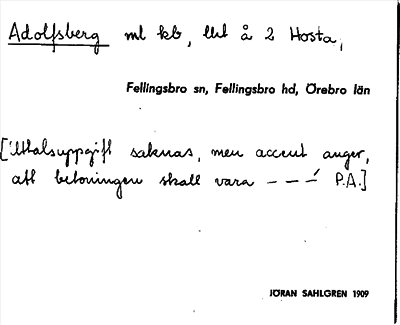 Adolfsberg ml kb, lht å 2 Hosta,
Fellingsbro sn, Fellingsbro hd, Örebro län
[Uttalsuppgift saknas, men accent anger,
att betoningen skall vara – – –́ P.A.]
JÖRAN SAHLGREN 1909